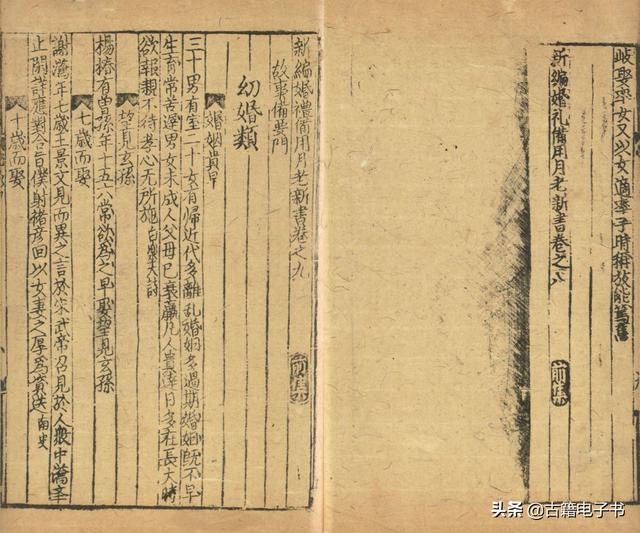 岐娶宰女又以女適宰子時稱放能篤舊
新編婚礼備用月老新書卷之八 前集
新編婚禮備用月老新書卷之九 前集
故事備要門
幼婚類
婚姻貴早
三十男有室二十女有歸近代多離乱婚姻多過期婚姻既不早
生育常苦遲男女未成人父母已衰羸凡人貴達日多在長大時
欲報親不待孝心无所施白樂天
望見玄孫
楊椿有曽孫年十五六常欲為之早娶望見玄孫
七歲而娶
謝瀹年七歲王景文見而異之言於宋武帝召見於人衆中瀹舉
止閑詳應對合旨僕射褚彦回以女妻之厚為資送南史
十歲而娶
头条 @古籍电子书